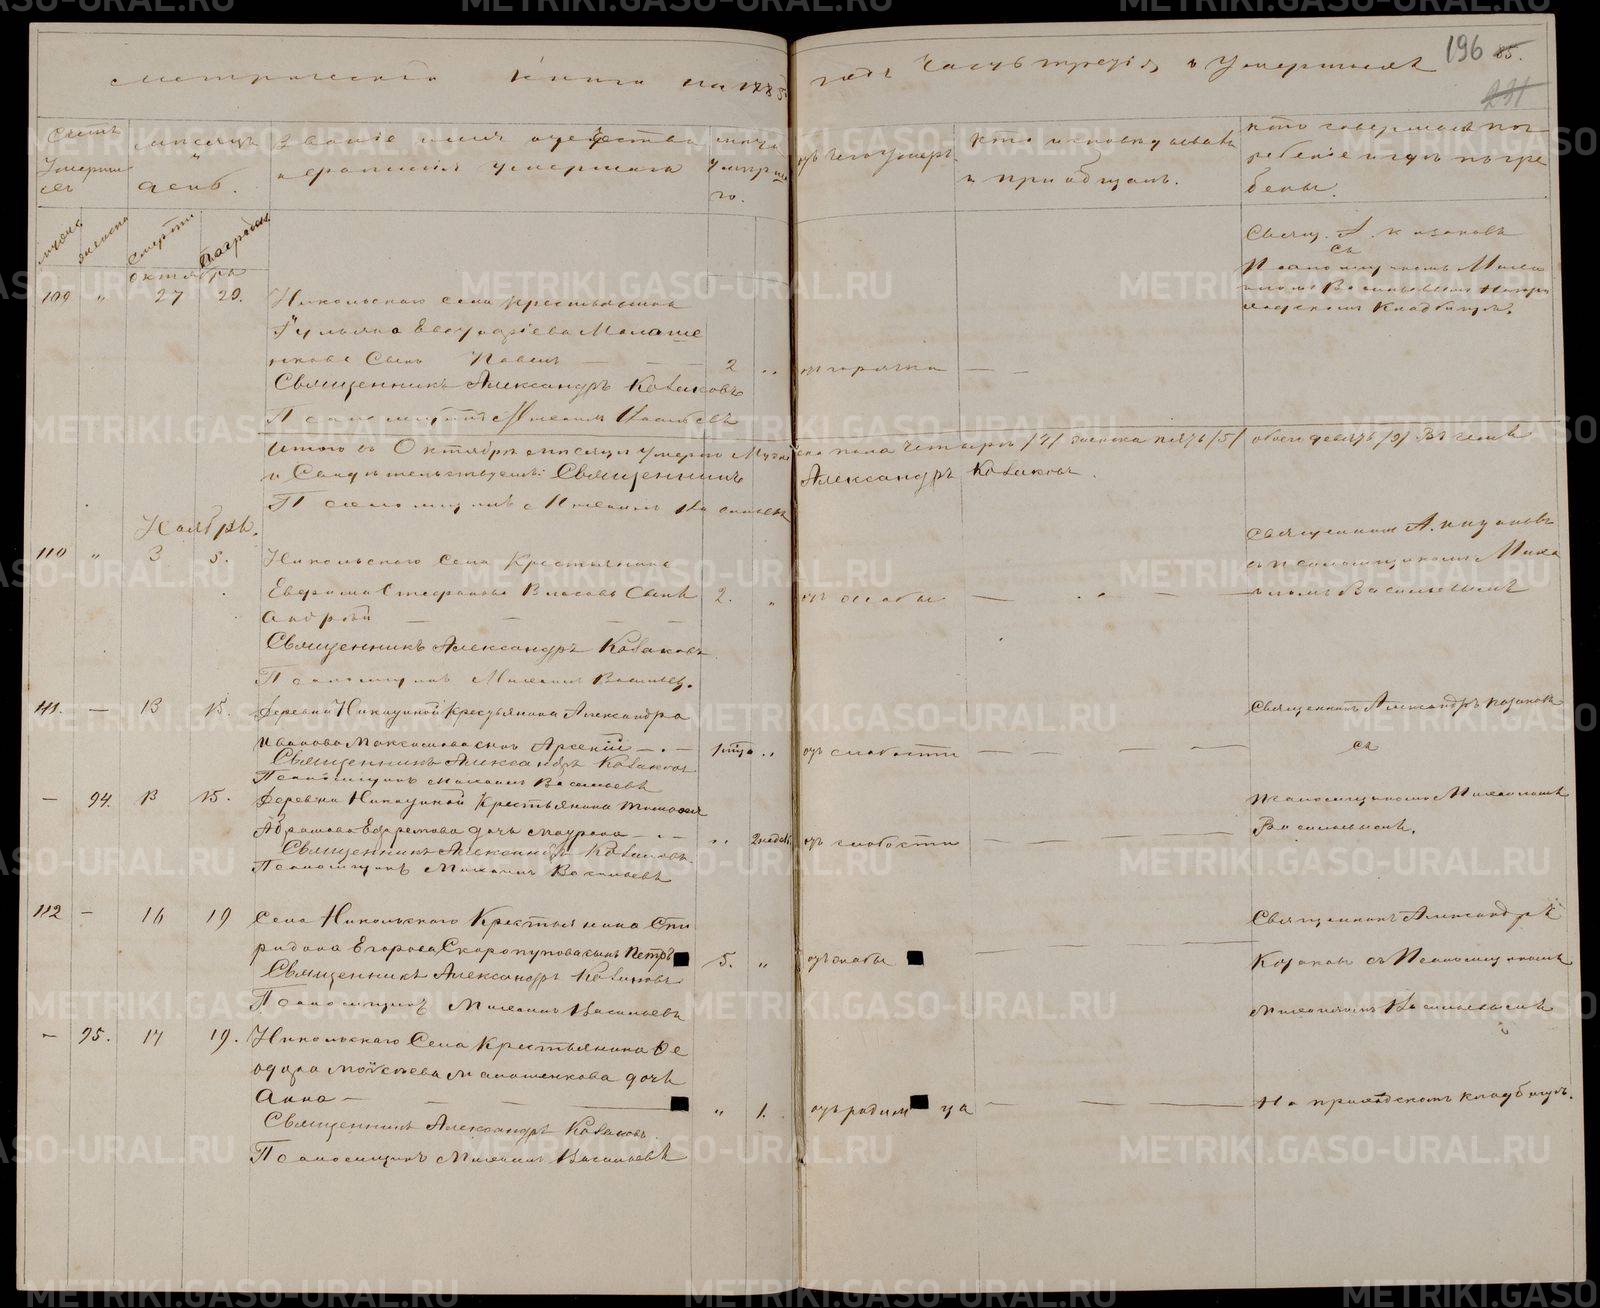 метрической Книги на 1885
годъ Часть третія, о Умершихъ
196 85.
231
Счетъ Умерших
мѣсяцъ и день.
Званіе имя отчество
и фамилія умершаго
лѣта Умерша го.
отъ чего Умеръ
Кто исповѣдывалъ
и приобщалъ.
кто совершалъ пог
ребеніе и гдѣ погре
бены.
мужск женска смерти Погребен
октября
109 " 27 29. Никольскаго села крестьянина
Евграфіева Малаше
нкова Сынъ Павелъ — — 2 " отъ горячки — —
Священникъ Александръ Козаковъ
Псаломщикъ Михаилъ Васильевъ
Свящ. А. Козаковъ
съ
Псаломщикомъ Миха
иломъ Васильевымъ на при
ходскомъ Кладбищѣ.
Итого въ Октябрѣ мѣсяцѣ умерло Мужс
ска пола четыре /4/ женска пять /5/ обоего девять /9/ Въ чемъ
и Свидѣтельствуемъ: Священникъ Александръ Козаковъ.
Псаломщикъ Михаилъ Васильевъ
Ноябрь.
110 " 3 5. Никольскаго Села Крестьянина
Ефрема Стефанова Власова Сынъ 2. " отъ оспы — —
Андрей — — —
Священникъ Александръ Козаковъ
Псаломщикъ Михаилъ Васильев.
Священникъ А. Козаковъ
съ псаломщикомъ Миха
иломъ Васильевымъ
111. — 13 15. Деревни Никитиной Крестьянина Александра
Иванова Максимова сынъ Арсеній — 1 " отъ слабости — —
Священникъ Александръ Козаковъ
Псаломщикъ Михаилъ Васильевъ
Священникъ Александръ Козаковъ
съ
— 94. 13 15. Деревни Никитиной Крестьянина Тимофея
Абрамова Ефремова дочь — " 2 недѣл отъ слабости — —
Священникъ Александръ Козаковъ
Псаломщикъ Михаилъ Васильевъ
Псаломщикомъ Михаиломъ
Васильевымъ.
112 — 16 19 Села Никольскаго Крестьянина Спи
ридона Егорова Скоропупова сынъ Петръ 5. " отъ оспы —
Священникъ Александръ Козаковъ
Псаломщикъ Михаилъ Васильевъ
Священникъ Александръ
Козаковъ съ Псаломщикомъ
Михаиломъ Васильевымъ
— 95. 17 19. Никольскаго Села Крестьянина Ѳе
одора Моисеева Малашенкова дочь
Анна — — " 1. отъ родимца — — На приходскомъ кладбищѣ.
Священникъ Александръ Козаковъ.
Псаломщикъ Михаилъ Васильевъ
METRIKI.GASO-URAL.RU